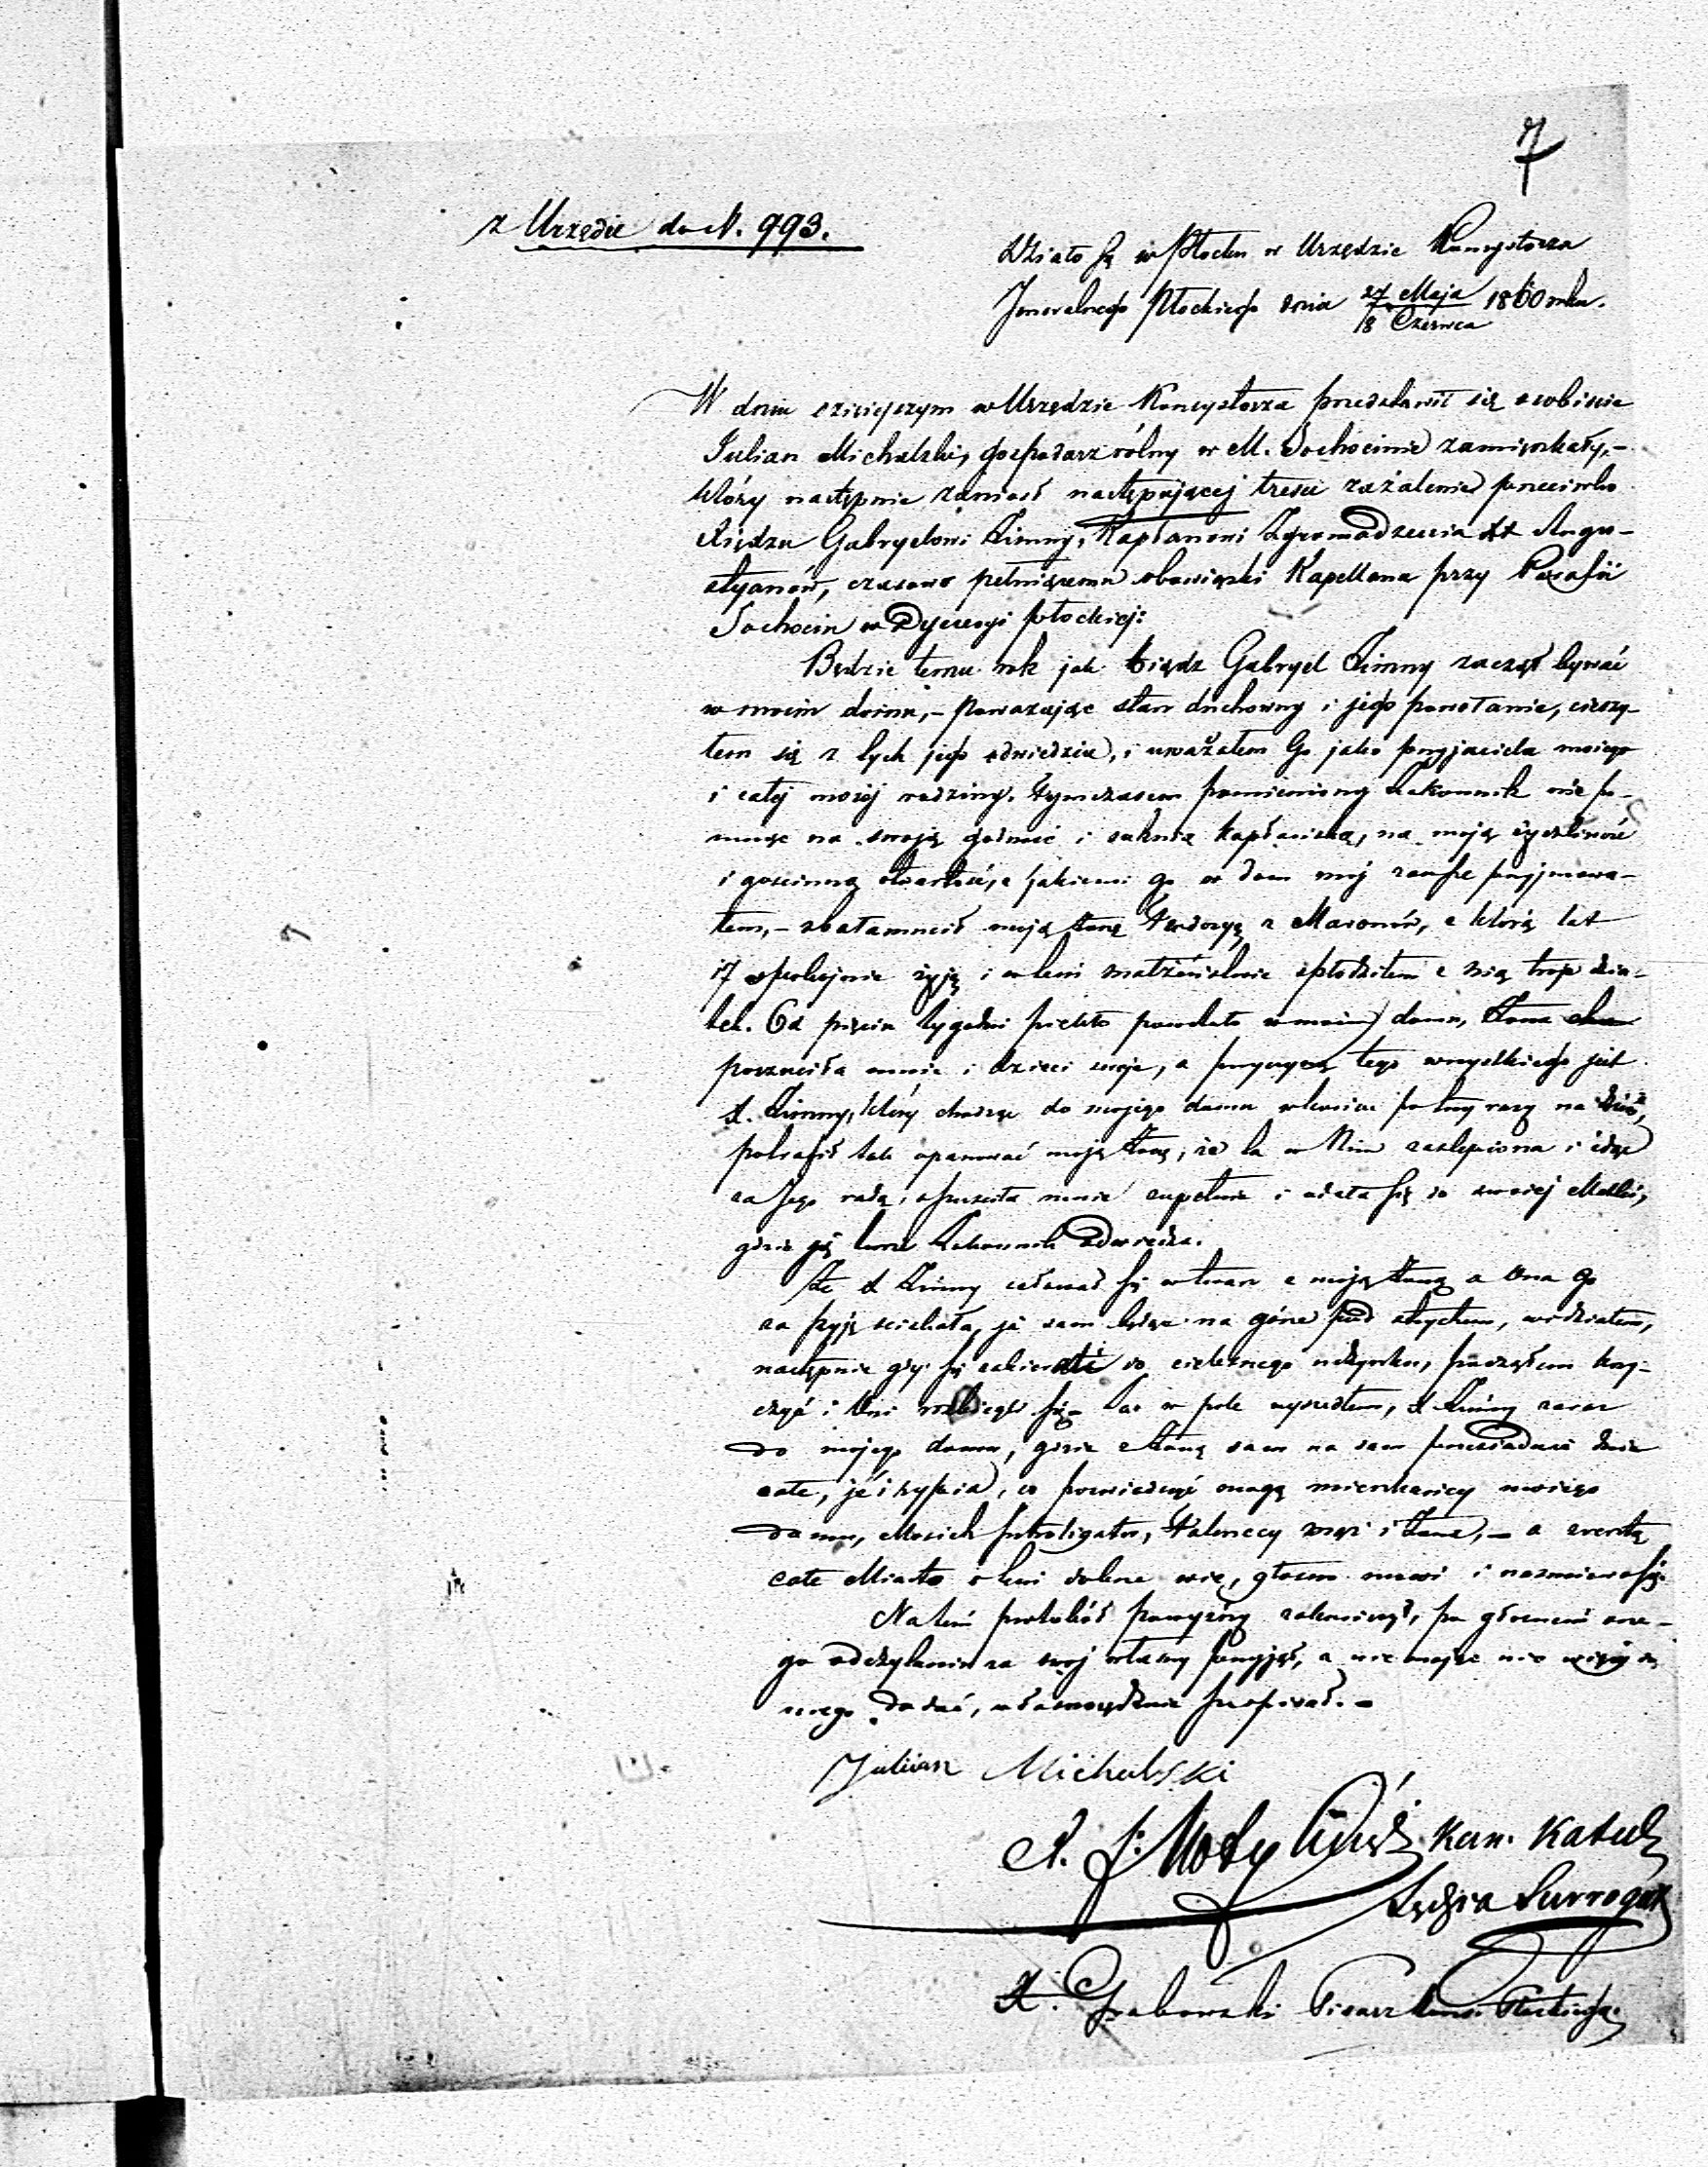 7
z Urzędu do N. 993.
Działo się w Płocku w Urzędzie Konsystorza
Jeneralnego Płockiego dnia 27 Maja / 8 Czerwca 1860 roku.
W dniu dzisiejszym w Urzędzie Konsystorza przedstawił się osobiście
Julian Michalski, gospodarz rólny w M. Sochocinie zamięszkały,-
który następnie zaniosł następującej treści zażalenie przeciwko
Xiędzu Gabryelowi Zimny, Kapłanowi Zgromadzenia XX Augu-
styanów, czasowo pełniącemu obowiązki Kapellana przy Parafii
Sochocin w Dyecezyi płockiej:
Będzie temu rok jak Xiądz Gabryel Zimny zaczął bywać
w moim domu,- poważając stan duchowny i jego powołanie, cieszy-
łem się z tych jego odwiedzin, i uważałem Go jako przyjaciela mojego
i całej mojéj rodziny. Tymczasem pomieniony Zakonnik nie po-
mnąc na swoją godność i suknią kapłańską, na moją życzliwość
i gościnną otwartość, z jakiemi go w dom mój zawsze przyjmowa-
łem,- zbałamucił moją żonę z Maronów, z którą lat
17 spokojnie żyję i w tém małżeństwie spłodziłem z nią troje dzia-
tek. Od pięciu tygodni piekło powstało w moim domu, Żona
porzuciła mnie i dzieci swoje, a przyczyną tego wszystkiego jest
X. Zimny, który chodząc do mojego domu po trzy razy na dzień,
potrafił tak opanować moją żonę, że ta w Nim zaślepiona i idąc
za Jego radą, opuściła mnie zupełnie i udała się do swojej Matki,
gdzie ją tenże Zakonnik odwiedza.
Że X Zimny całował się w twarz z moją żoną a Ona Go
za szyję sciskała, ja sam będąc na górze pod strychem, widziałem,
następnie gdy się zabierali do cielesnego uczynku, począłem krzy-
czyć i Oni rozbiegli się- Jak w pole wyszedłem, X Zimny zaraz
do mojego domu, gdzie z żoną sam na sam przesiaduje dnie
całe, jé i sypia, co poświadczyć mogą mieszkańcy mojego
domu, Mosiek Introligator, mąż i żona,- a zresztą
całe Miasto o tém dobrze wie, głosno mówi i nasmiewa się.
Na tém protokół powyższy zakończył, po głosném one-
go odczytaniu za swój własny przyjął, a nie mając nic więcej do
niego dodać, własnoręcznie podpisał.-
Julian Michalski
X. J. Kan. Kated.
Sędzia Surrogat
X. Grabowski Pisarz Kons. Płockiego.